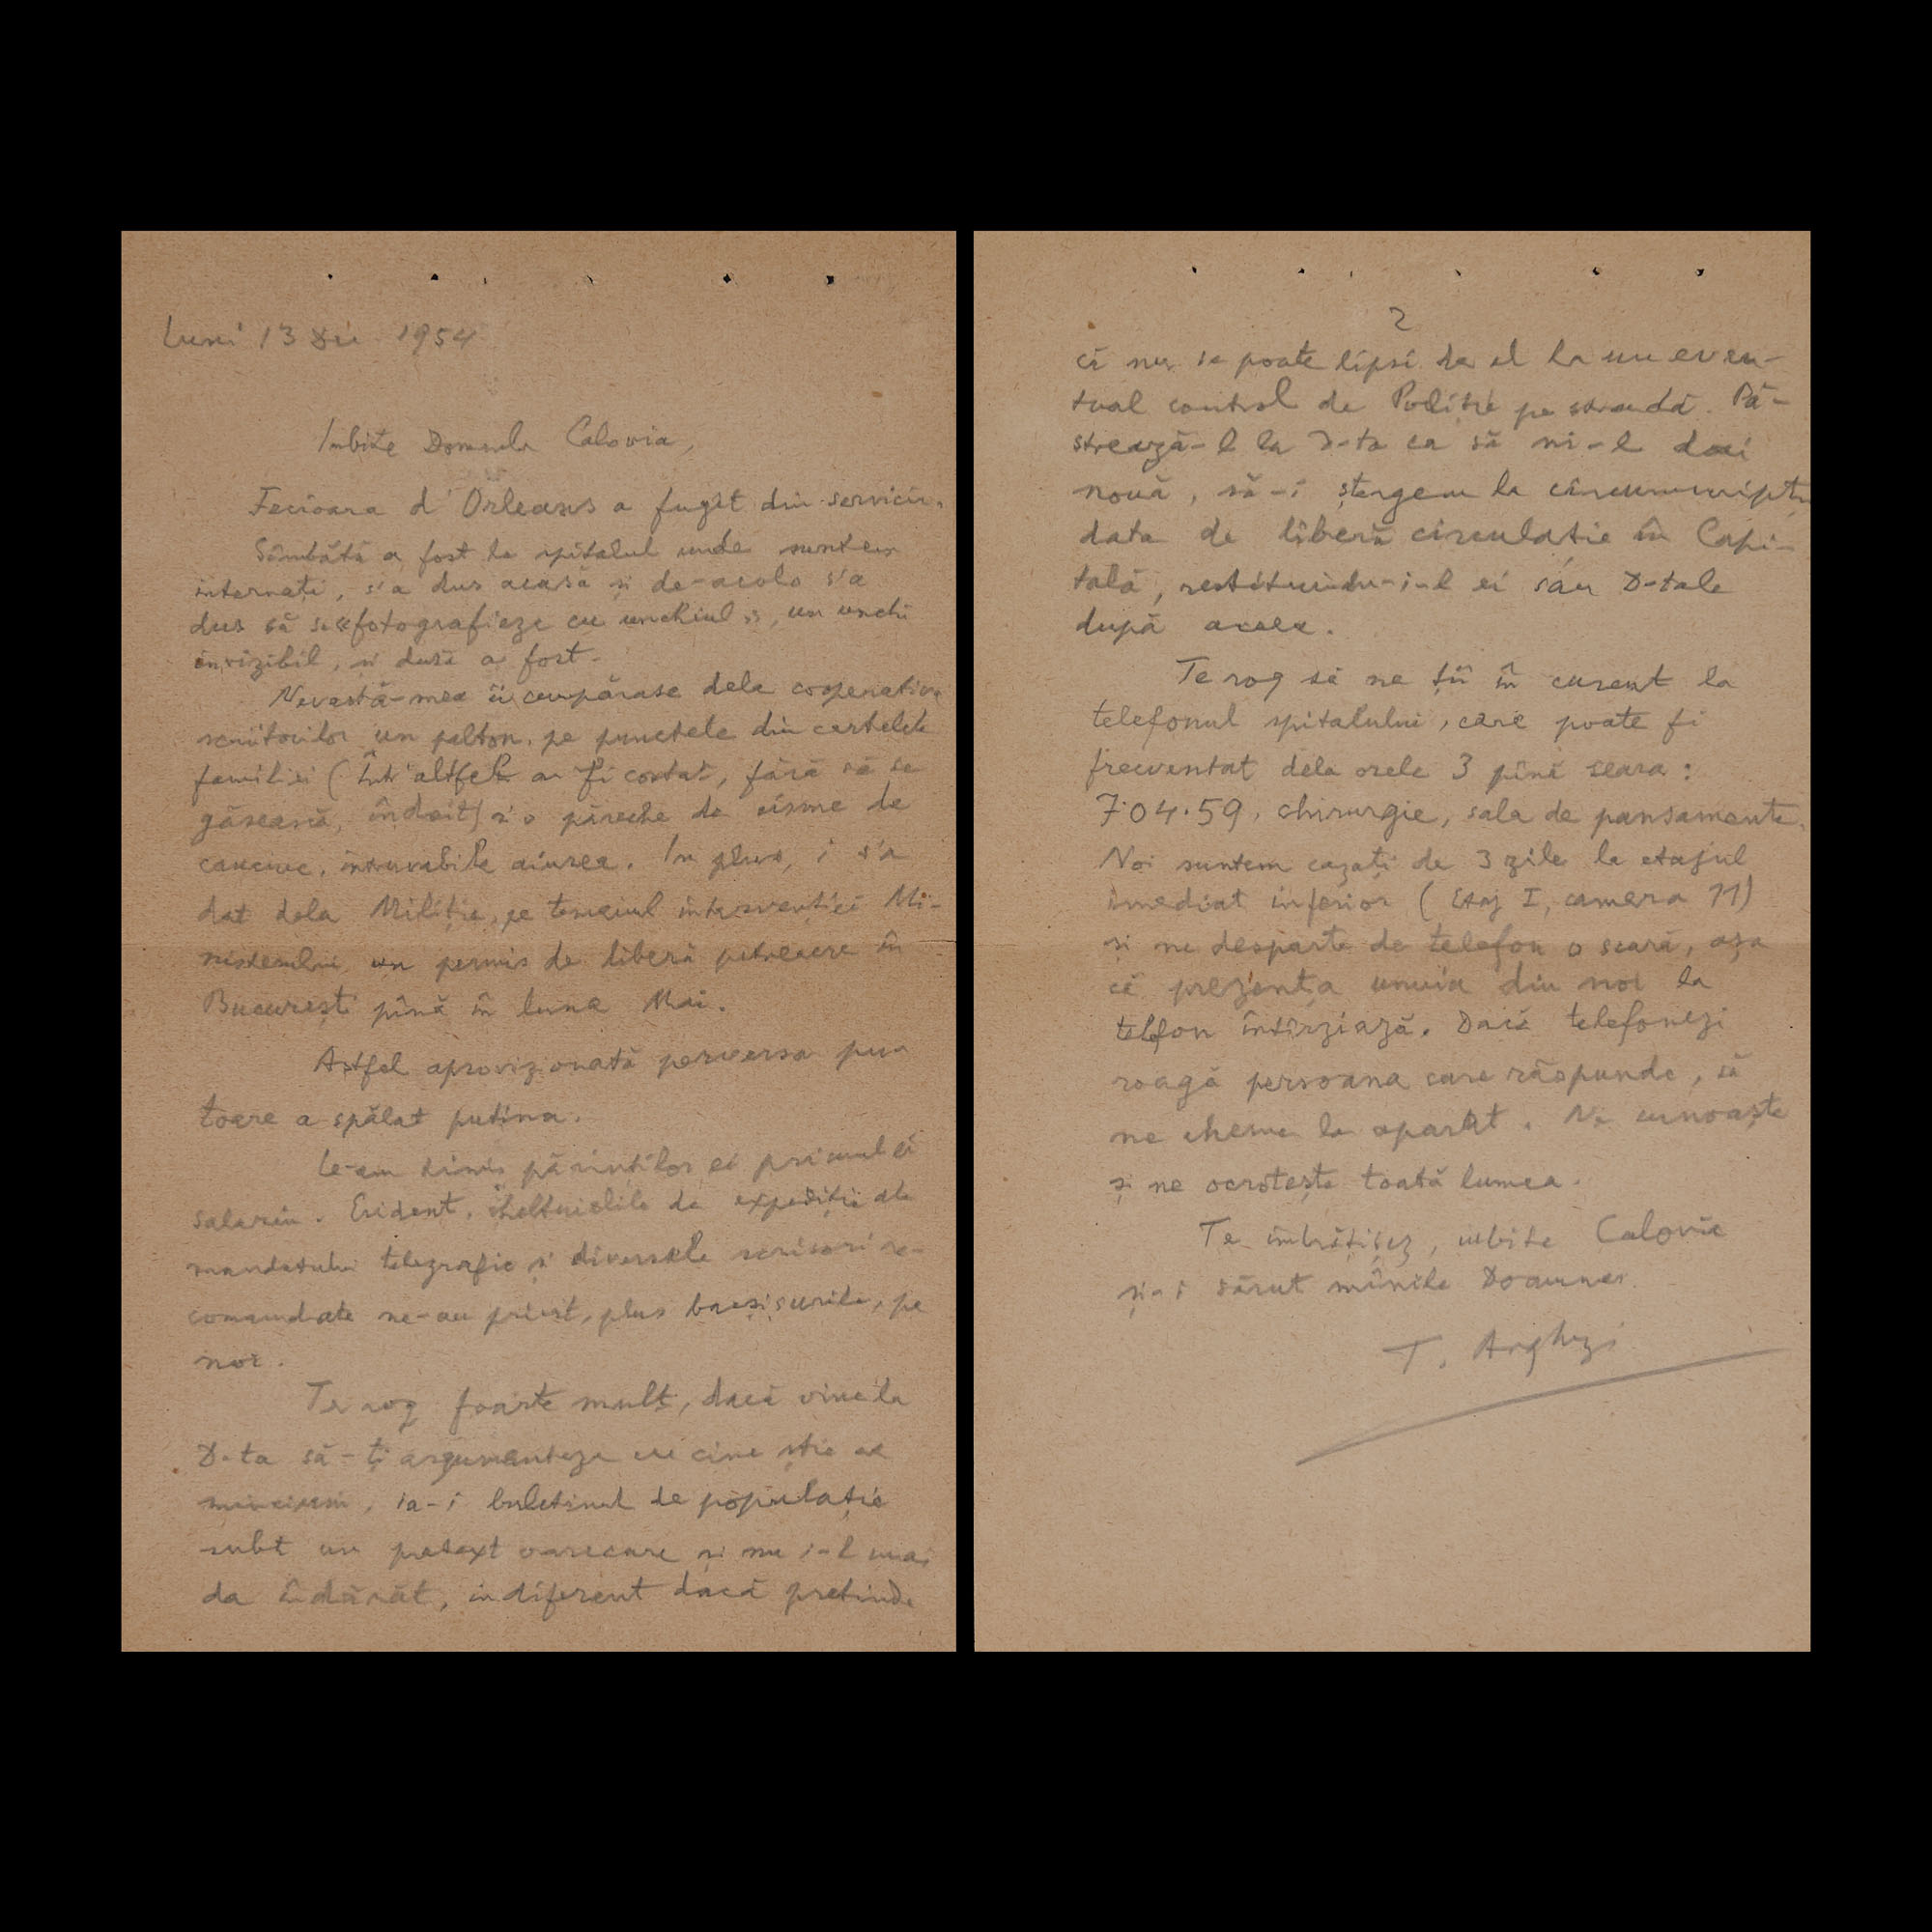 Luni 13 Dec 1954
Iubite Domnule Calovia,
Fecioara d'Orleans a fugit din serviciu.
Sâmbătă a fost la spitalul unde suntem
internați, s'a dus acasă și de-acolo s'a
dus să se fotografieze cu unchiul ei, un unchi
invizibil, și dusă a fost.
Nevastă-mea îi cumpărase dela cooperativa
scriitorilor un palton, pe punctele din cartelele
familiei (Într'altfel ar fi costat, fără să se
găsească, îndoit) și o păreche de cisme de
cauciuc, introuvabile aiurea. In plus, i s'a
dat dela Miliție, pe temeiul intervenției Mi-
nisterului, un permis de liberă petrecere în
București pînă în luna Mai.
Astfel aprovizionată perversa pu-
toare a spălat putina.
Le-am trimis părinților ei primul ei
salariu. Evident, cheltuielile de expediție ale
mandatului telegrafic și diversele scrisori re-
comandate ne-au privit, plus bacșișurile, pe
noi.
Te rog foarte mult, dacă vine la
D-ta să-ți argumenteze cu cine știe ce
minciuni, ia-i buletinul de populație
subt un pretext oarecare și nu i-l mai
da îndărăt, indiferent dacă pretinde
2
că nu se poate lipsi de el la un even-
tual control de Poliție pe stradă. Pă-
strează-l la D-ta ca să ni-l dai
nouă, să-i ștergem la circumscripție
data de liberă circulație în Capi-
tală, restituindu-i-l ei sau D-tale
după aceea.
Te rog să ne ții în curent la
telefonul spitalului, care poate fi
frecventat dela orele 3 pînă seara:
7.04.59, chirurgie, sala de pansamente.
Noi suntem cazați de 3 zile la etajul
imediat inferior (Etaj I, camera 11)
și ne desparte de telefon o scară, așa
că prezența unuia din noi la
telefon întîrziază. Dacă telefonezi
roagă persoana care răspunde, să
ne cheme la aparat. Ne cunoaște
și ne ocrotește toată lumea.
Te îmbrățișez, iubite Calovia
și-i sărut mînile Doamnei.
T. Arghezi